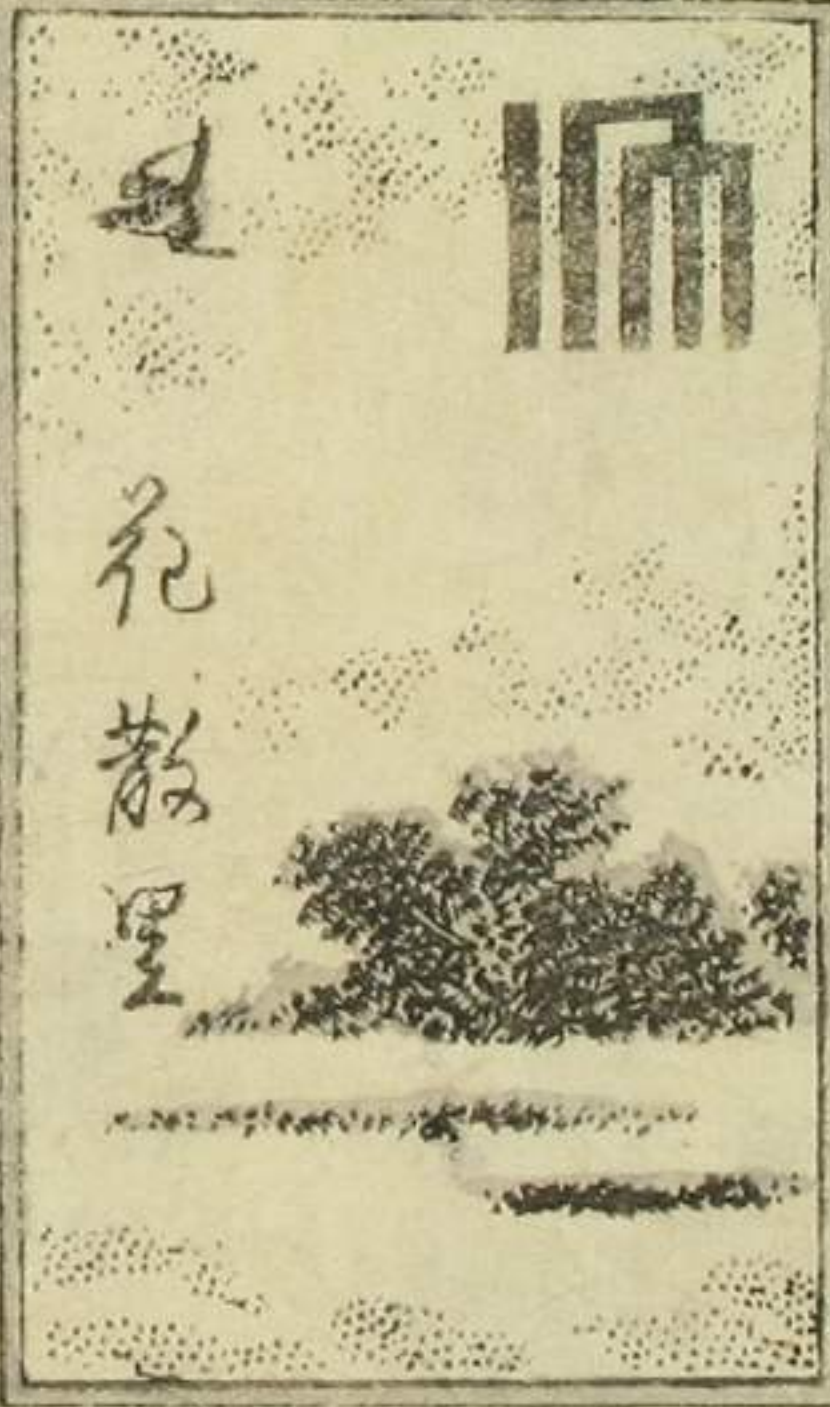 花散里